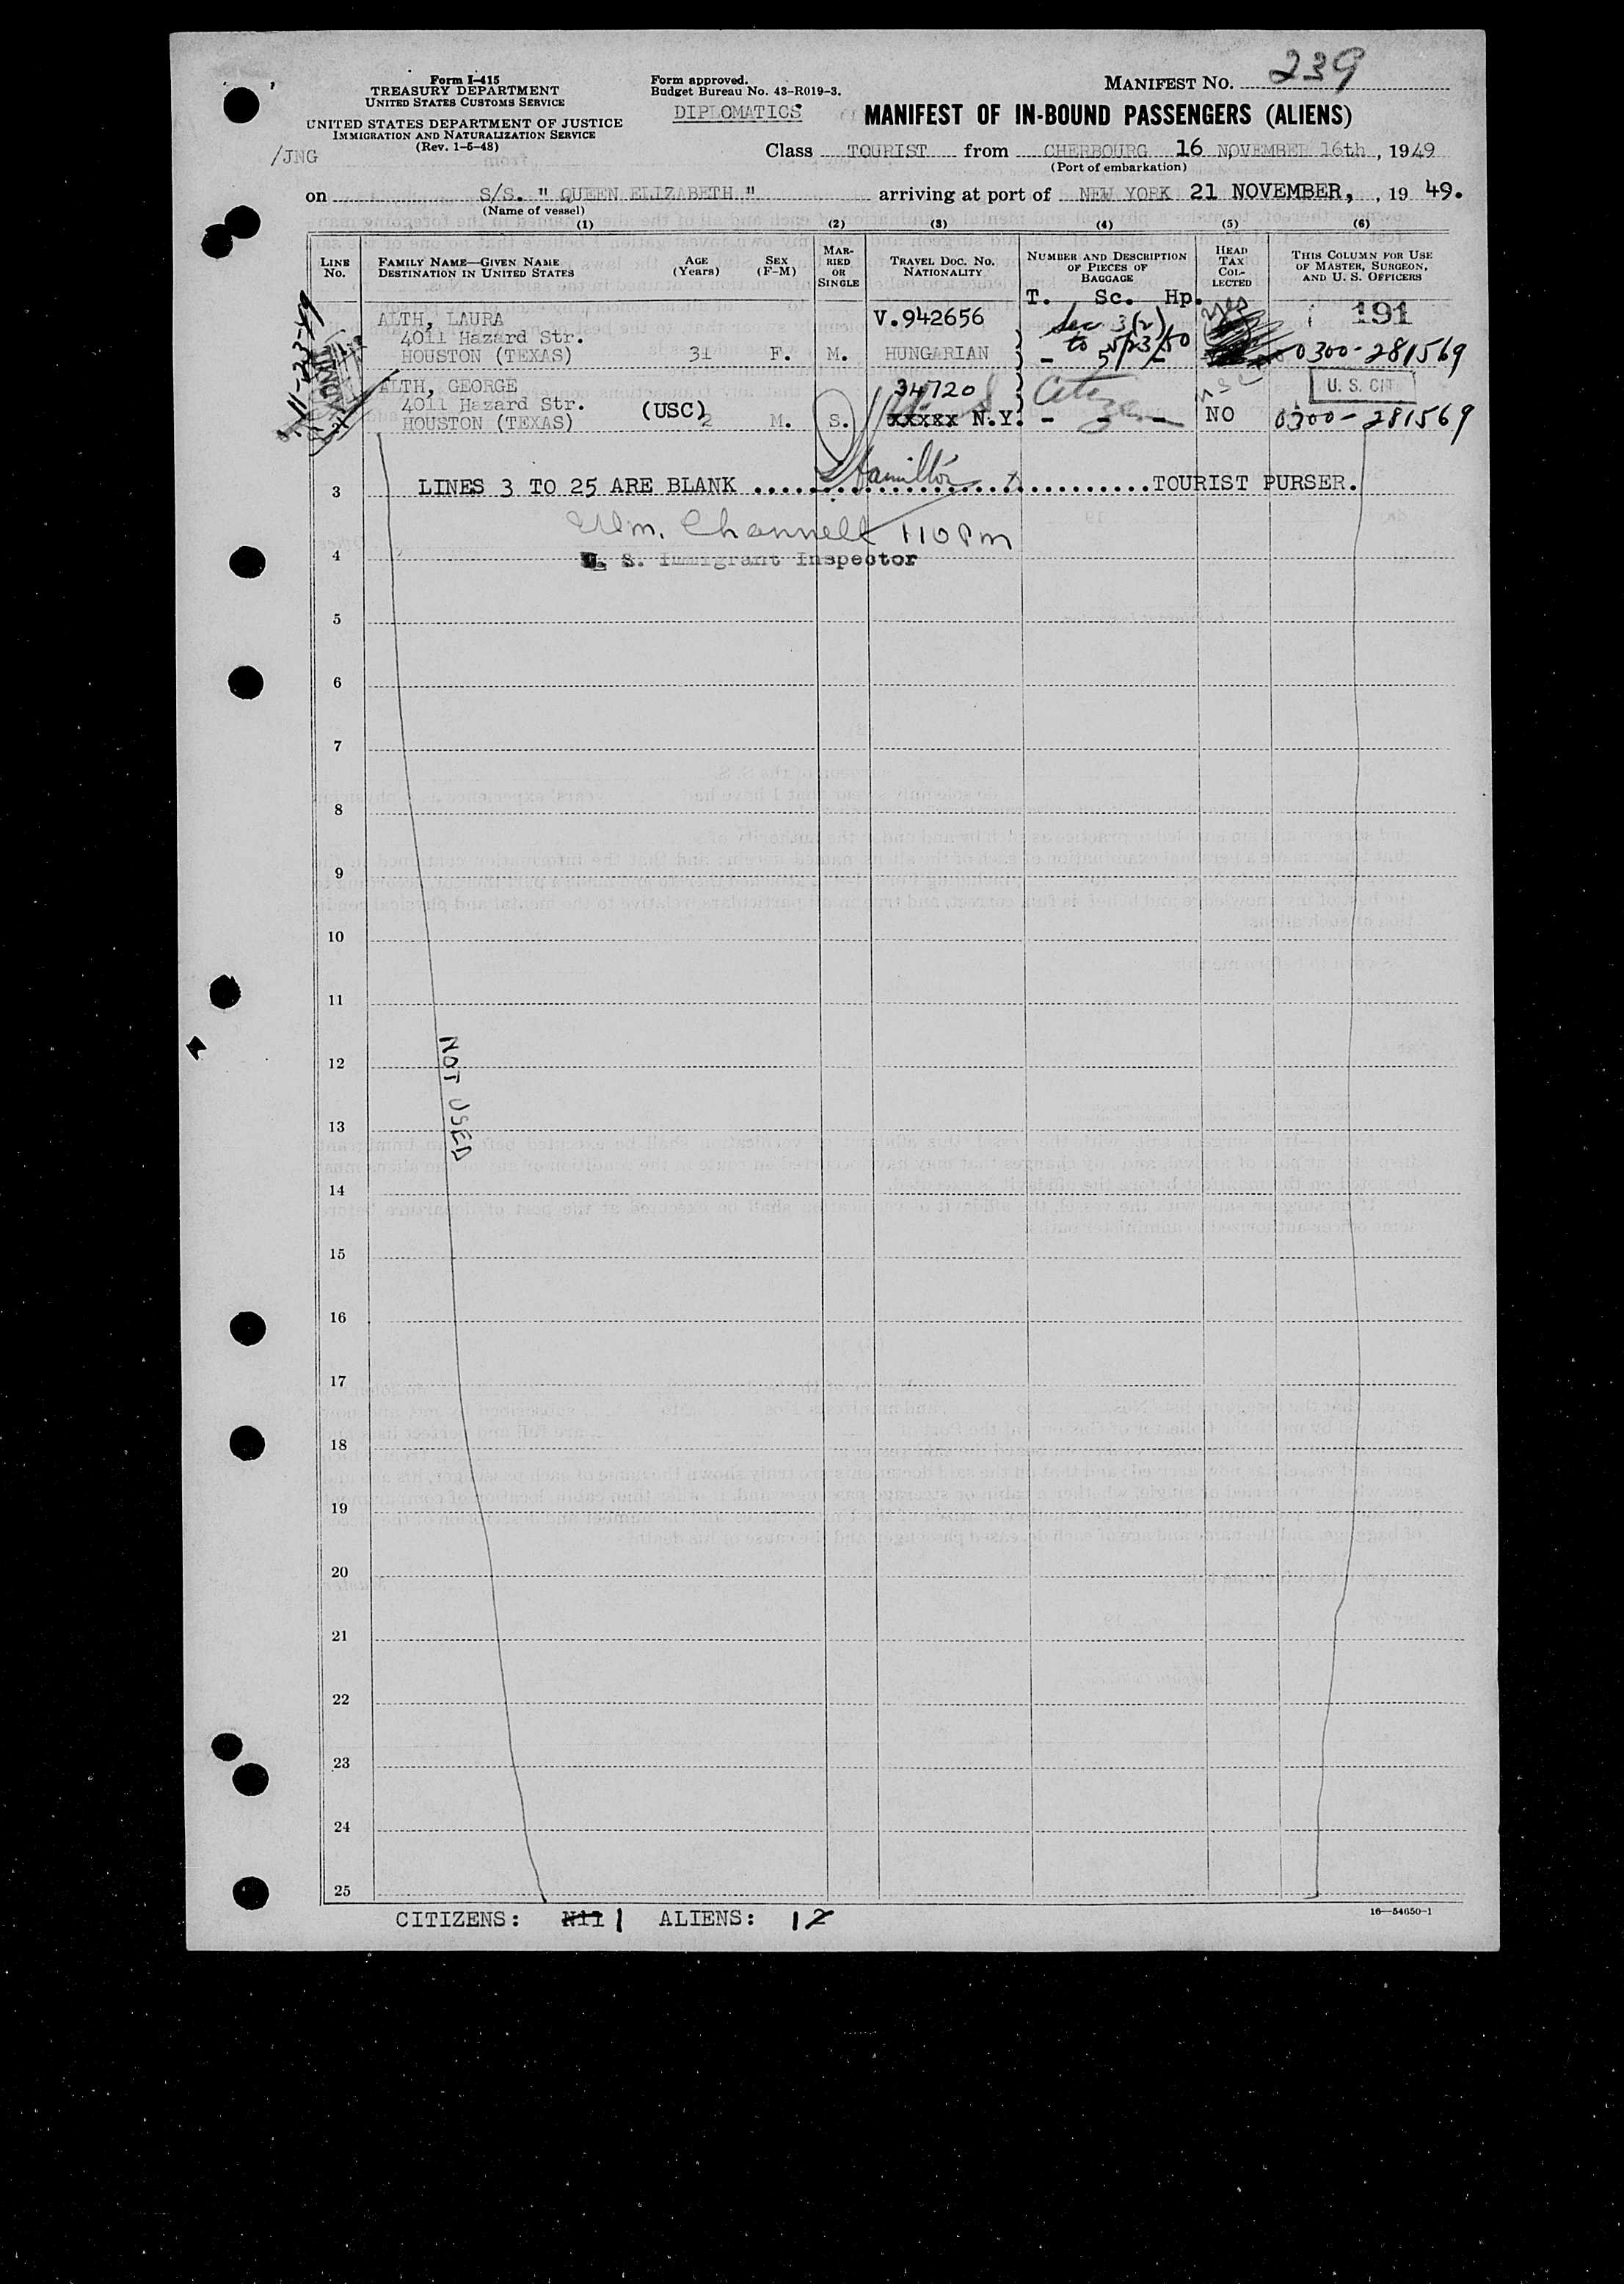 Form I-415
TREASURY DEPARTMENT
UNITED STATES CUSTOMS SERVICE
UNITED STATES DEPARTMENT OF JUSTICE
IMMIGRATION AND NATURALIZATION SERVICE
(Rev. 1-5-48)
/JNG
Form approved.
Budget Bureau No. 43-R019-3.
DIPLOMATICS
MANIFEST NO. 239
MANIFEST OF IN-BOUND PASSENGERS (ALIENS)
Class TOURIST from CHERBOURG 16 NOVEMBER 16th, 1949
(Port of embarkation)
on S/S. " QUEEN ELIZABETH " arriving at port of NEW YORK 21 NOVEMBER, , 19 49.
(Name of vessel)
(1) (2) (3) (4) (5) (6)
LINE No.
FAMILY NAME—GIVEN NAME
DESTINATION IN UNITED STATES
AGE (Years)
SEX (F-M)
MARRIED OR SINGLE
TRAVEL DOC. NO.
NATIONALITY
NUMBER AND DESCRIPTION OF PIECES OF BAGGAGE
T. Sc. Hp.
HEAD TAX COLLECTED
THIS COLUMN FOR USE OF MASTER, SURGEON, AND U. S. OFFICERS
11-23-49
ALTH, LAURA
4011 Hazard Str.
HOUSTON (TEXAS) 31 F. M.
V.942656
HUNGARIAN
Sec 3(2)
to 5/23/50
- 5 / -
191
0300-281569
ALTH, GEORGE
4011 Hazard Str. (USC)
HOUSTON (TEXAS) 2 M. S.
34720
xxxxx N.Y.
Citizen
- - -
NO
U. S. CIT.
0300-281569
3 LINES 3 TO 25 ARE BLANK ............ TOURIST PURSER.
Hamilton
Wm. Channell 110 Pm
4 U. S. Immigrant Inspector
5
6
7
8
9
10
11
12
NOT USED
13
14
15
16
17
18
19
20
21
22
23
24
25
CITIZENS: N11 1 ALIENS: 1 2
16-54650-1